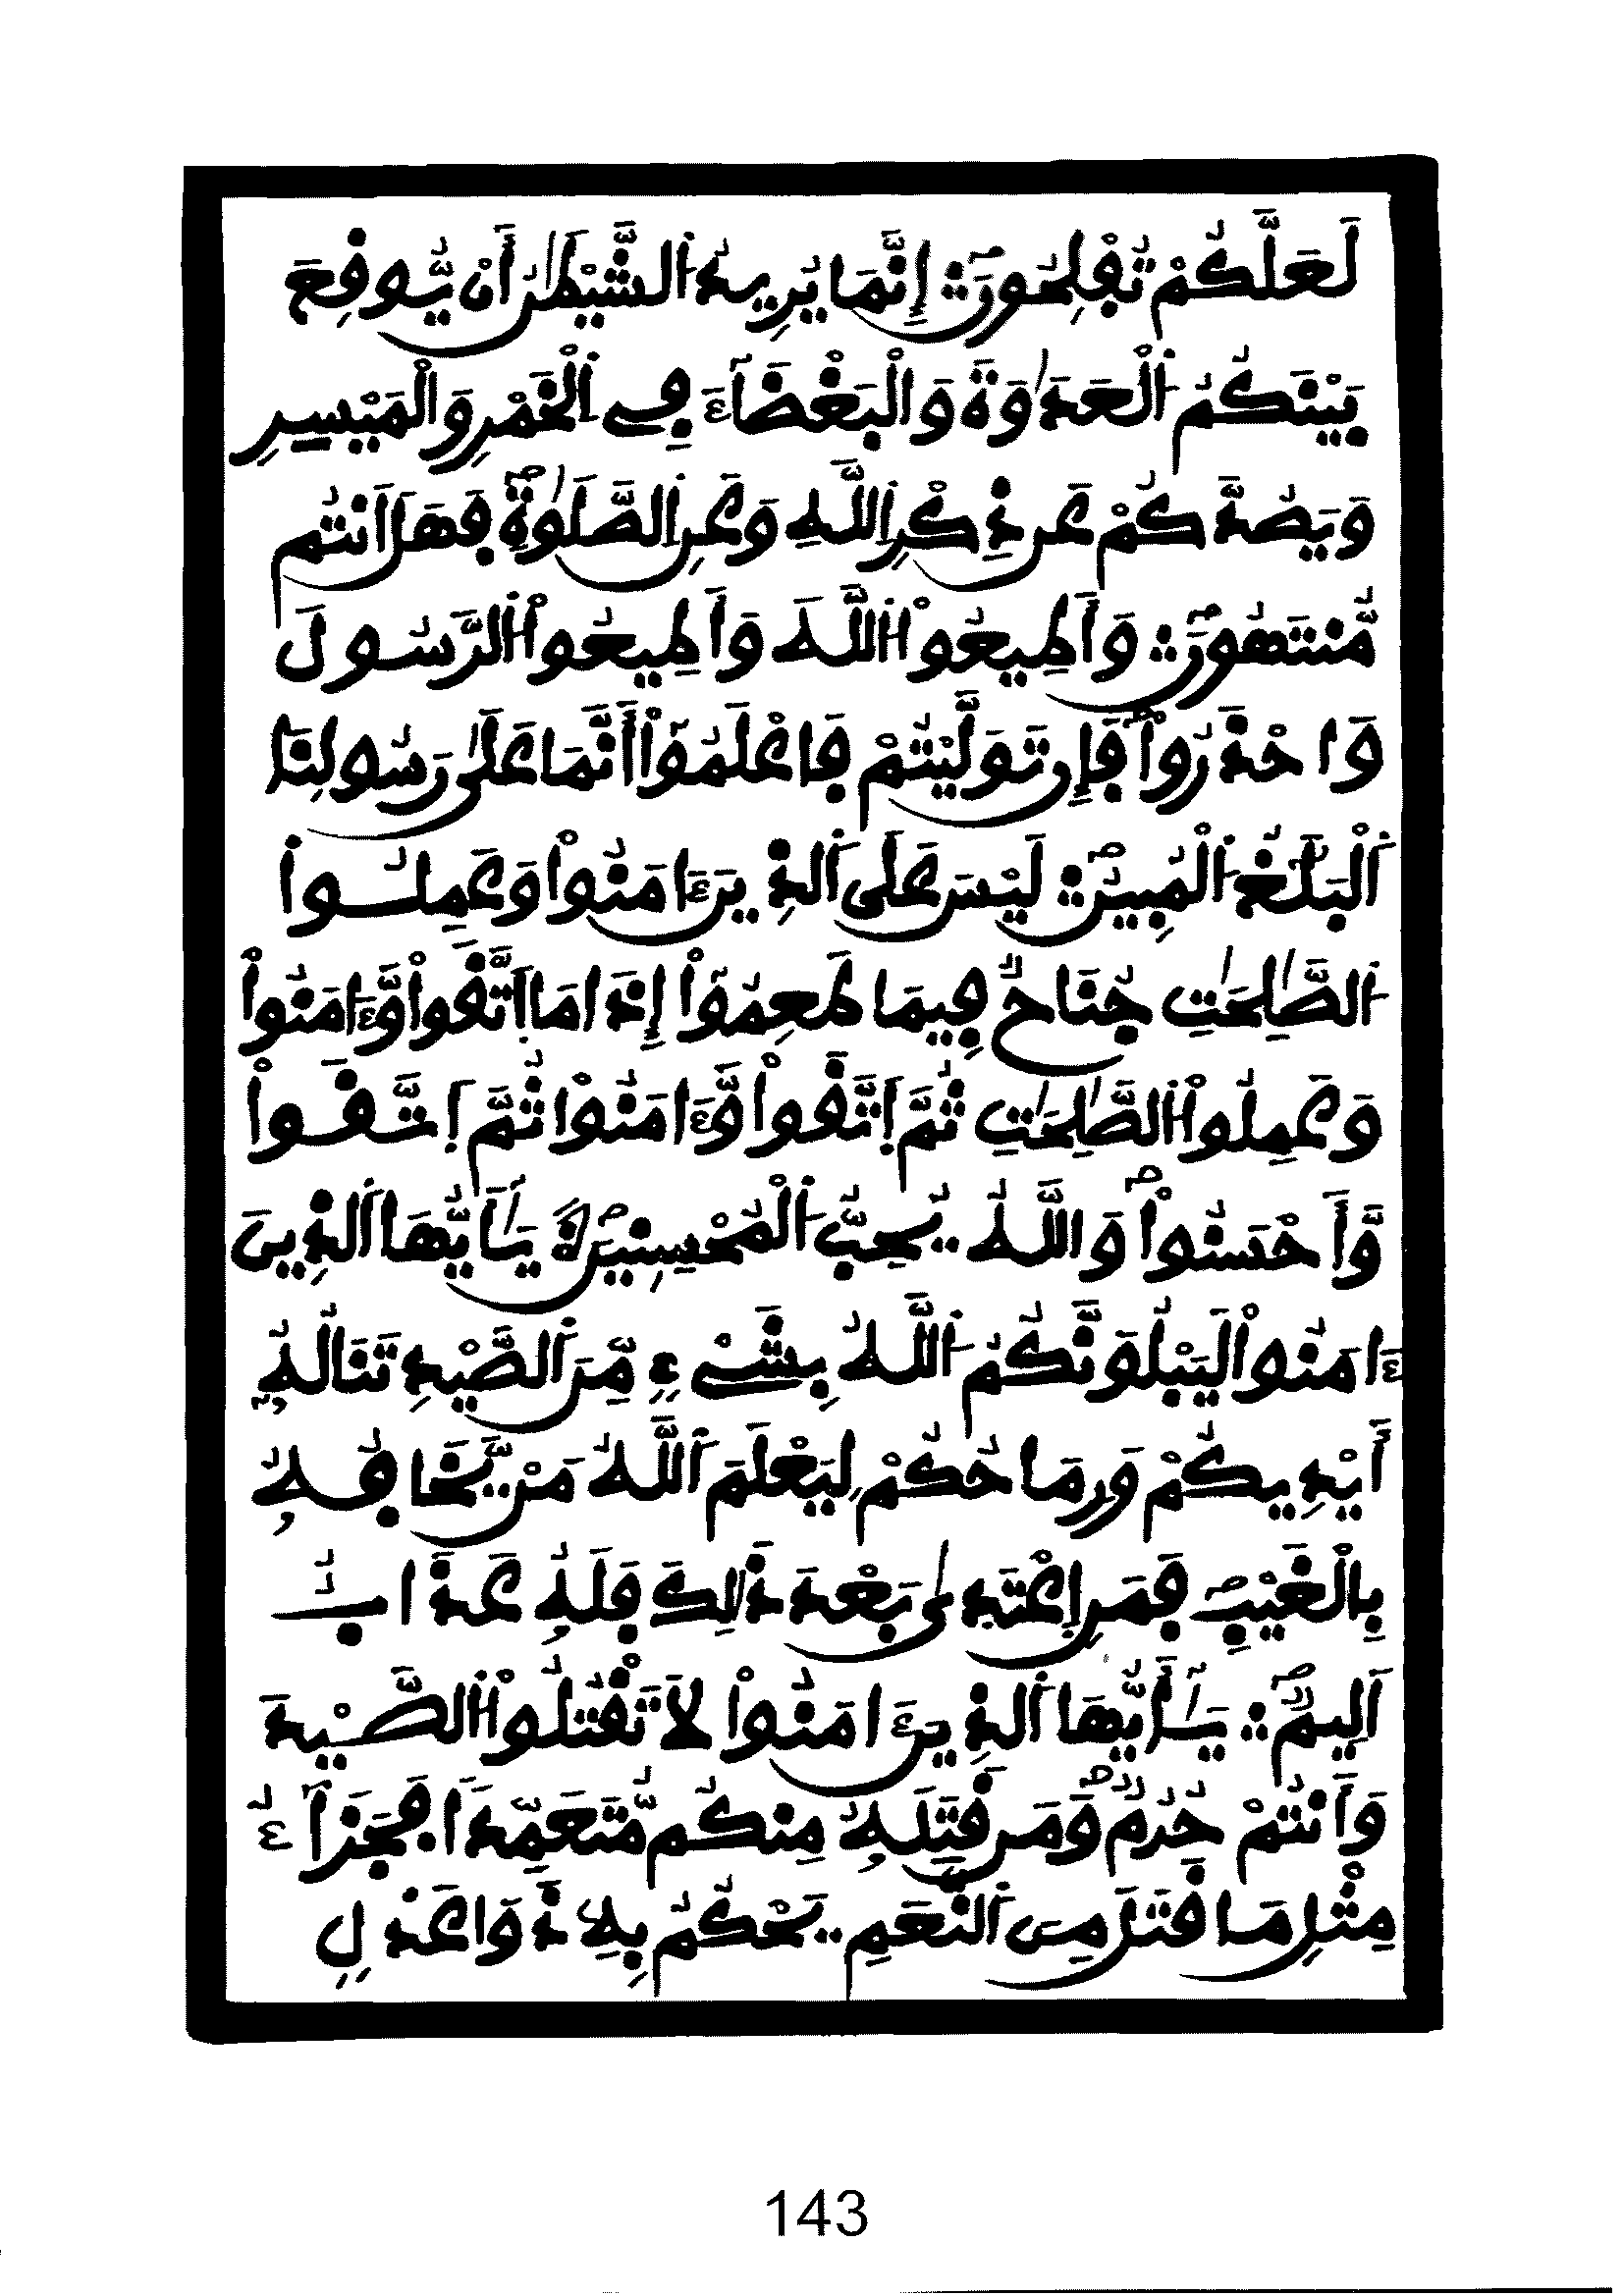 لَعَلَّكُمْ تُفْلِحُونَ ۞ إِنَّمَا يُرِيدُ اُ۬لشَّيْطَٰنُ أَنْ يُّوقِعَ
بَيْنَكُمُ اُ۬لْعَدَٰوَةَ وَالْبَغْضَآءَ فِے اِ۬لْخَمْرِ وَالْمَيْسِرِ
وَيَصُدَّكُمْ عَن ذِكْرِ اِ۬للَّهِ وَعَنِ اِ۬لصَّلَوٰةِ فَهَلَ اَنتُم
مُّنتَهُونَ ۞ وَأَطِيعُواْ اُ۬للَّهَ وَأَطِيعُواْ اُ۬لرَّسُولَ
وَاحْذَرُواْ فَإِن تَوَلَّيْتُمْ فَاعْلَمُوٓاْ أَنَّمَا عَلَىٰ رَسُولِنَا
اَ۬لْبَلَٰغُ اُ۬لْمُبِينُ ۞ لَيْسَ عَلَى اَ۬لذِينَ ءَامَنُواْ وَعَمِلُواْ
اُ۬لصَّٰلِحَٰتِ جُنَاحٞ فِيمَا طَعِمُوٓاْ إِذَا مَا اَ۪تَّقَواْ وَّءَامَنُواْ
وَعَمِلُواْ اُ۬لصَّٰلِحَٰتِ ثُمَّ اَ۪تَّقَواْ وَّءَامَنُواْ ثُمَّ اَ۪تَّقَواْ
وَّأَحْسَنُواْ وَاللَّهُ يُحِبُّ اُ۬لْمُحْسِنِينَ ۞ يَٰٓأَيُّهَا اَ۬لذِينَ
ءَامَنُواْ لَيَبْلُوَنَّكُمُ اُ۬للَّهُ بِشَےْءٖ مِّنَ اَ۬لصَّيْدِ تَنَالُهُۥٓ
أَيْدِيكُمْ وَرِمَاحُكُمْ لِيَعْلَمَ اَ۬للَّهُ مَنْ يَّخَافُهُۥ
بِالْغَيْبِ فَمَنِ اِ۪عْتَدَىٰ بَعْدَ ذَٰلِكَ فَلَهُۥ عَذَابٌ
اَلِيمٞ ۞ يَٰٓأَيُّهَا اَ۬لذِينَ ءَامَنُواْ لَا تَقْتُلُواْ اُ۬لصَّيْدَ
وَأَنتُمْ حُرُمٞ وَمَن قَتَلَهُۥ مِنكُم مُّتَعَمِّداٗ فَجَزَآءُ
مِثْلِ مَا قَتَلَ مِنَ اَ۬لنَّعَمِ يَحْكُمُ بِهِۦ ذَوَا عَدْلٖ
143